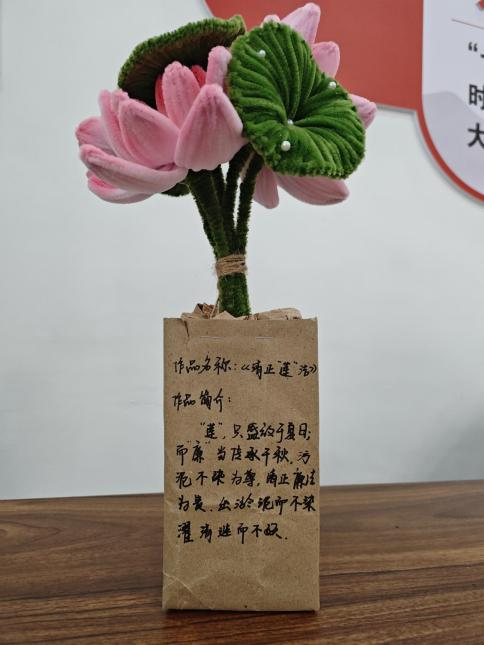 作品名称:《清正"莲"洁》
作品简介:
"莲",只盛放于夏日;
而"廉"当传承千秋,污
泥不染为尊,清正廉洁
为贵,出淤泥而不染
濯清涟而不妖.
"
时
大